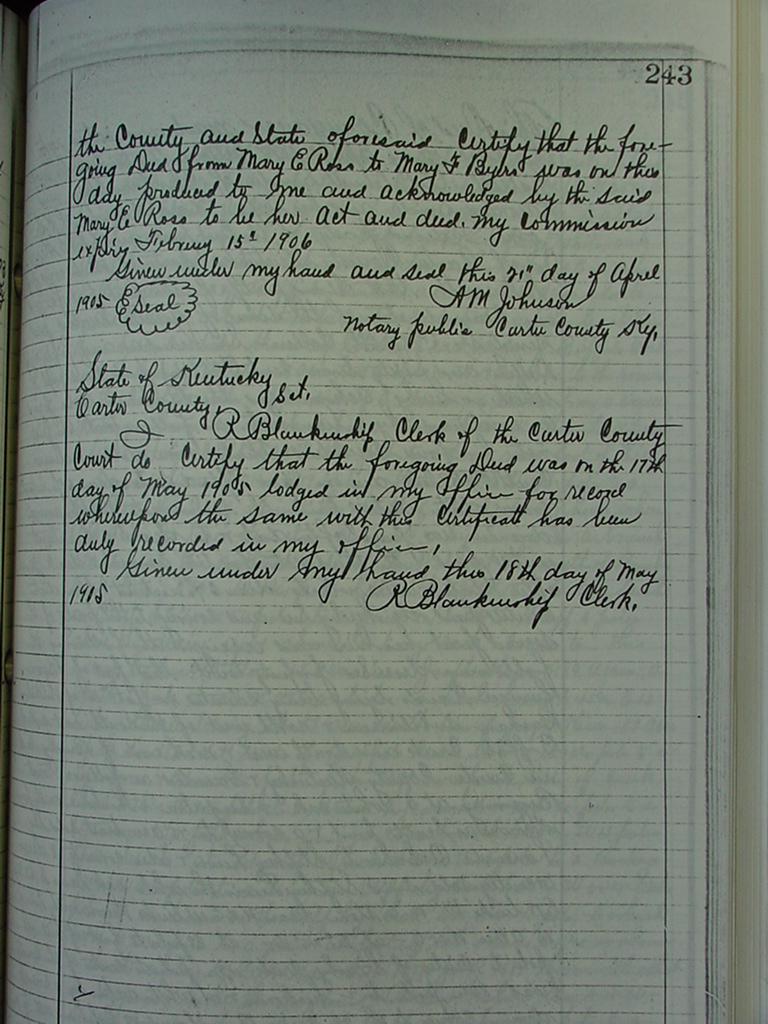 243
the County and State aforesaid Certify that the fore-
going Deed from Mary E Ross to Mary F Byers was on this
day produced to me and acknowledged by the said
Mary E Ross to be her act and deed. My commission
expires February 15th 1906
Given under my hand and seal this 21st day of April
1905 Seal A M Johnson
Notary public Carter County Ky.
State of Kentucky
Carter County, Sct.
I R Blankenship Clerk of the Carter County
Court do Certify that the foregoing Deed was on the 17th
day of May 1905 lodged in my office for record
whereupon the same with this Certificate has been
duly recorded in my office,
Given under my hand this 18th day of May
1905 R Blankenship Clerk.